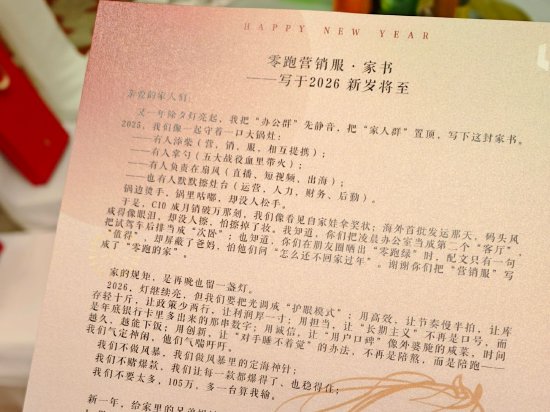 HAPPY NEW YEAR
零跑营销服·家书
——写于2026 新岁将至
亲爱的家人们：
又一年除夕灯亮起，我把“办公群”先静音，把“家人群”置顶，写下这封家书。
2025，我们像一起守着一口大锅灶：
——有人添柴（营，销，服，相互提携）；
——有人掌勺（五大战役血里带火）；
——有人负责在扇风（直播，短视频，出海）；
——也有人默默擦灶台（运营，人力，财务、后勤）。
锅边烫手，锅里咕嘟，却没人松手。
于是，C10 成月销破万那刻，我们像看见自家娃拿奖状；海外首批发运那天，码头风
咸得像眼泪，却没人擦，怕擦掉了妆。我知道，你们把凌晨办公室当成第二个“客厅”，
把试驾车后排当成“次卧”；也知道，你们在朋友圈晒出“零跑绿”时，配文只有一句
“值得”，却屏蔽了爸妈，怕他们问“怎么还不回家过年”。谢谢你们把“营销服”写
成了“零跑的家”。
家的规矩，是再晚也留一盏灯。
2026，灯继续亮，但我们要把光调成“护眼模式”：用高效，让节奏慢半拍，让库
存轻十斤，让政策少两行，让利润厚一寸；用担当，让“长期主义”不再是口号，而
是年底银行卡里多出来的那串数字；用诚信，让“用户口碑”像外婆腌的咸菜，时间
越久，越能下饭；用创新，让“对手睡不着觉”的办法，不再是陪熬，而是陪跑——
我们气定神闲，他们气喘吁吁。
我们不做风暴，我们做风暴里的定海神针；
我们不赌爆款，我们让每一款都爆得了、也稳得住；
我们不要太多，105万，多一台算我输。